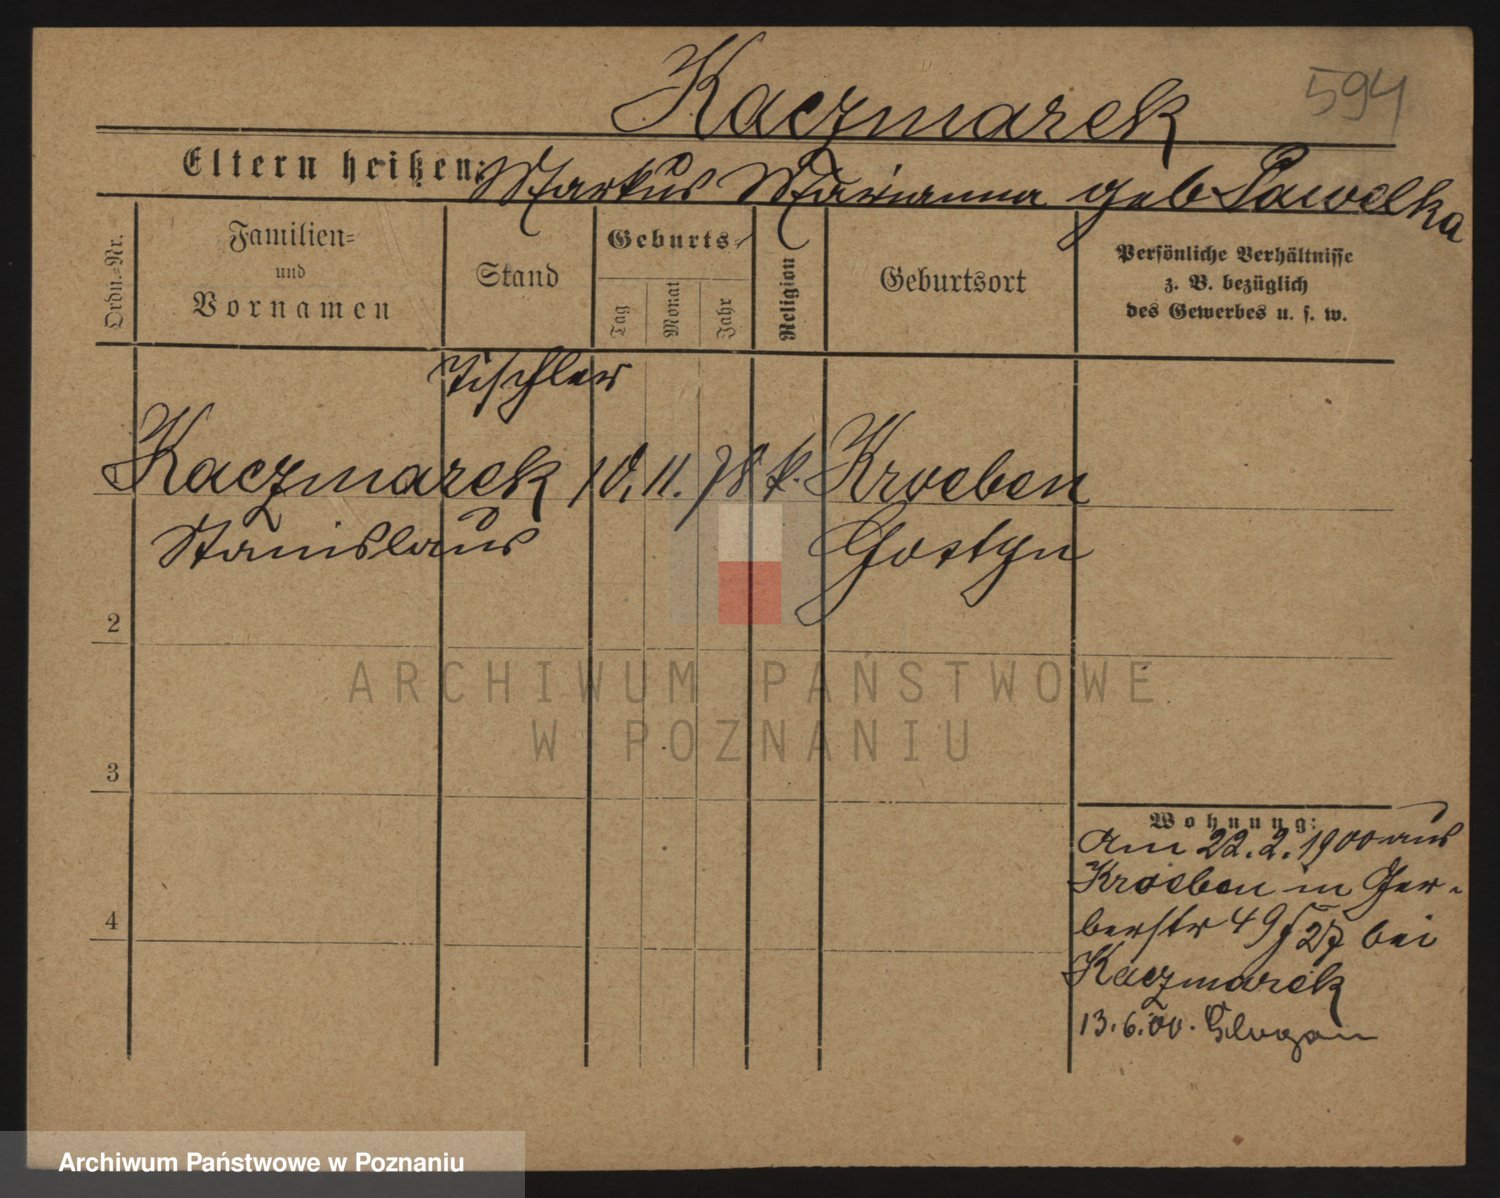 Kaczmarek
594
Eltern heißen: Markus Marianna geb Pawelka
Ordn.=Nr.
Familien=
und
Vornamen
Stand
Geburts=
Tag
Monat
Jahr
Religion
Geburtsort
Persönliche Verhältnisse
z. B. bezüglich
des Gewerbes u. s. w.
Tischler
Kaczmarek 10. 11. 78 k. Kroeben
Stanislaus Gostyn
2
3
4
Wohnung:
am 22. 2. 1900 aus
Kroeben in Ger-
berstr 49 bei
Kaczmarek
13. 6. 00. Glogau
ARCHIWUM PAŃSTWOWE
W POZNANIU
Archiwum Państwowe w Poznaniu